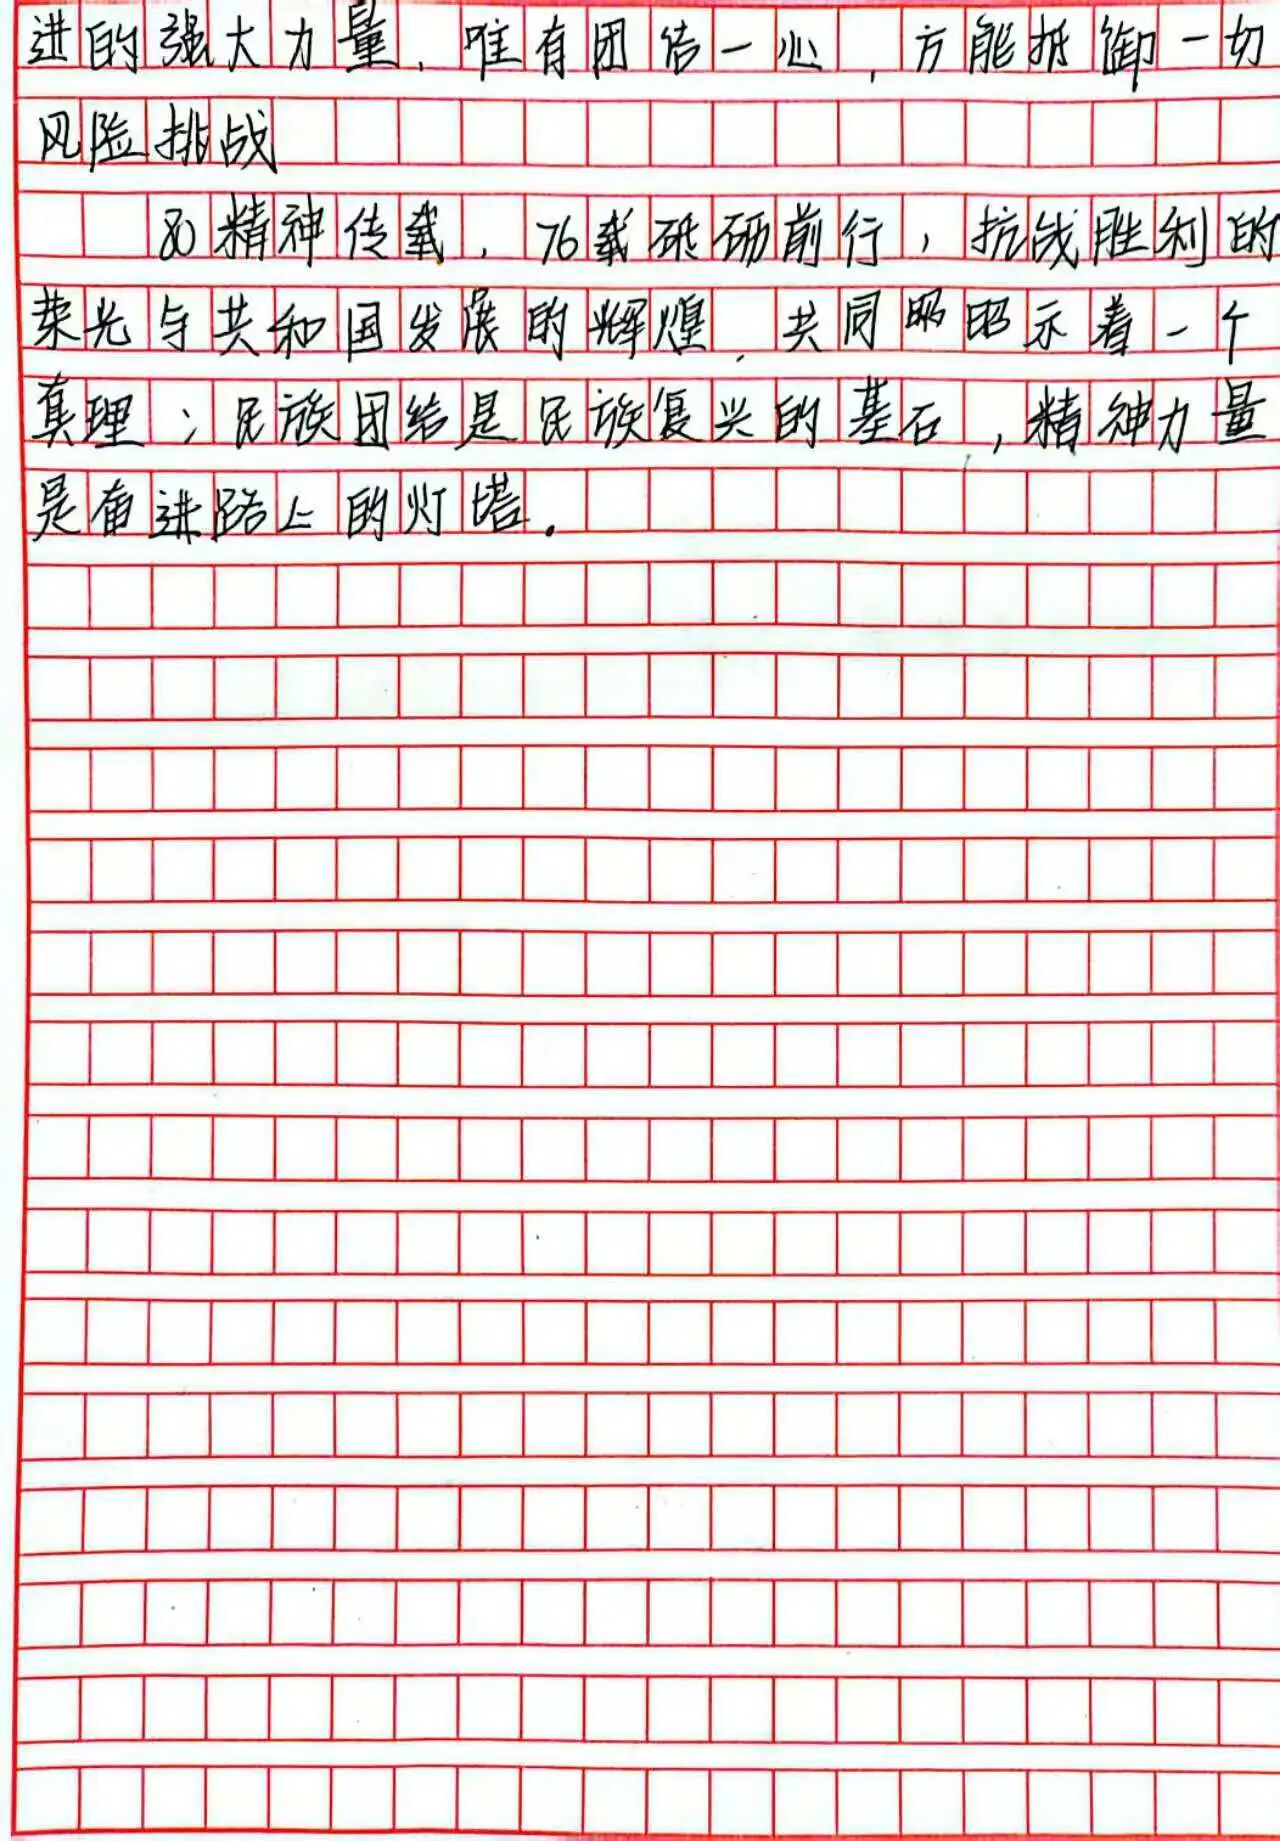 进的强大力量，唯有团结一心，方能抵御一切
风险挑战
80精神传载，76载砥砺前行，抗战胜利的
荣光与共和国发展的辉煌，共同昭昭示着一个
真理：民族团结是民族复兴的基石，精神力量
是奋进路上的灯塔。